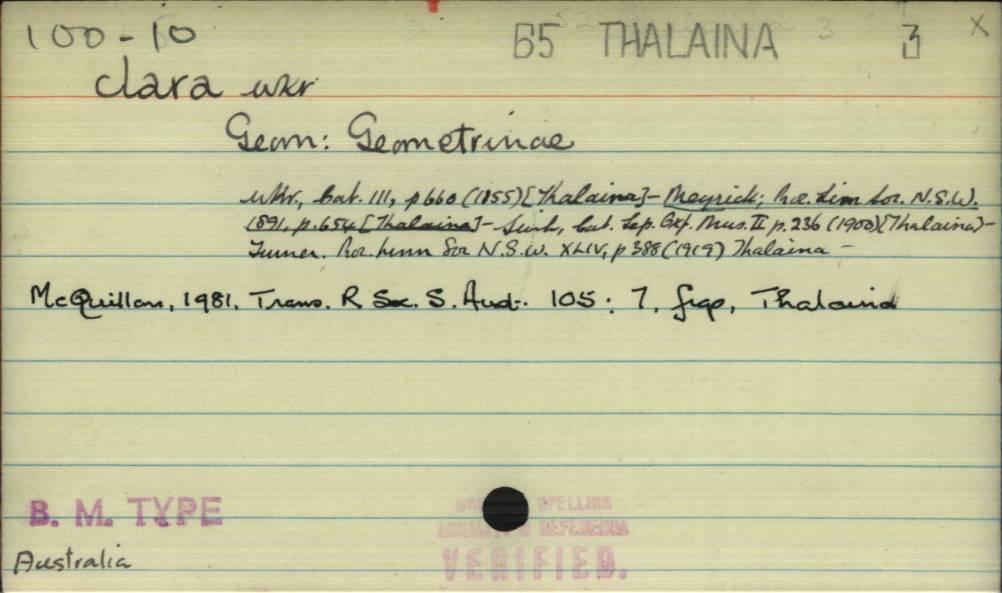 100-10 65 THALAINA 3 X
clara wkr
Geom: Geometrinae
wkr, Cat. III, p 660 (1855) [Thalaina] - Meyrick; Proc. Linn Soc. N.S.W.
1891, p. 654 [Thalaina] - Swinh, Cat. Lep. Oxf. Mus. II p. 236 (1900) [Thalaina] -
Turner. Proc. Linn Soc N.S.W. XLIV, p 388 (1919) Thalaina -
McQuillan, 1981. Trans. R Soc. S. Aust. 105: 7, figs, Thalaina
B. M. TYPE
SPELLING
REFERENCE
VERIFIED.
Australia